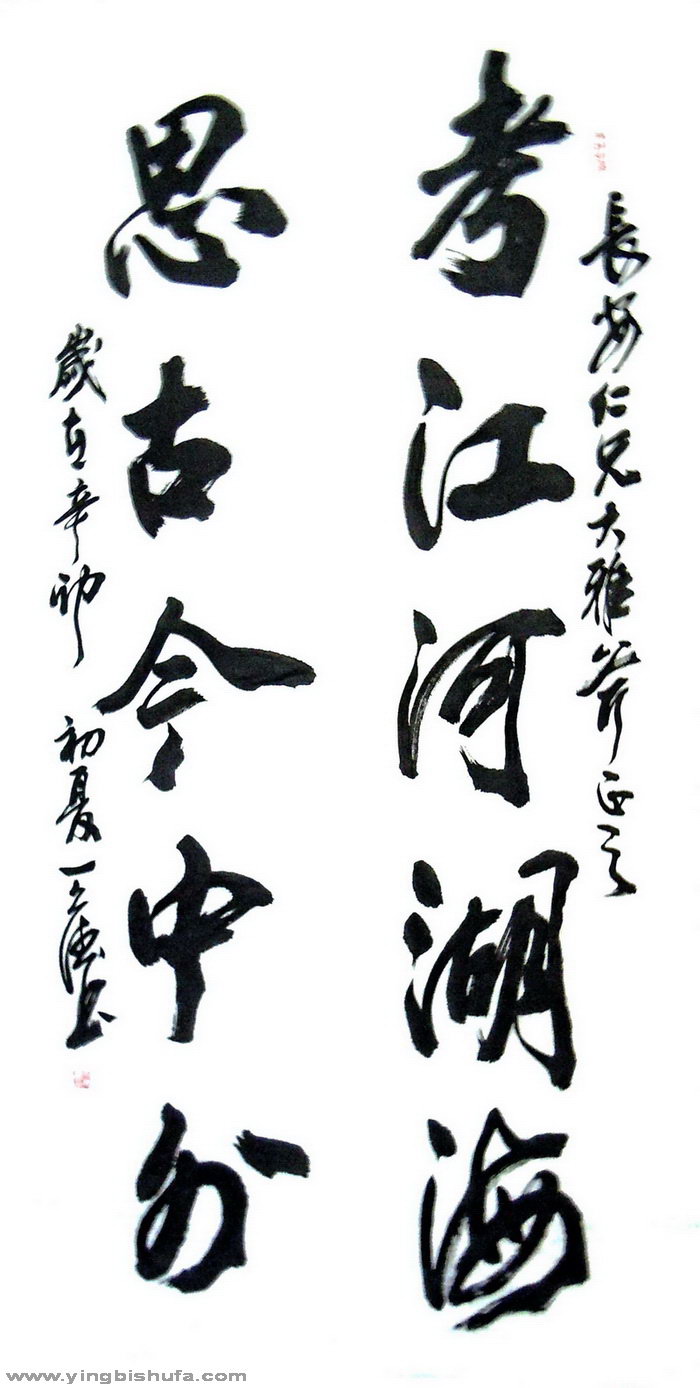 長安仁兄大雅斧正之
考江河湖海
思古今中外
歲在辛卯初夏一
www.yingbishufa.com